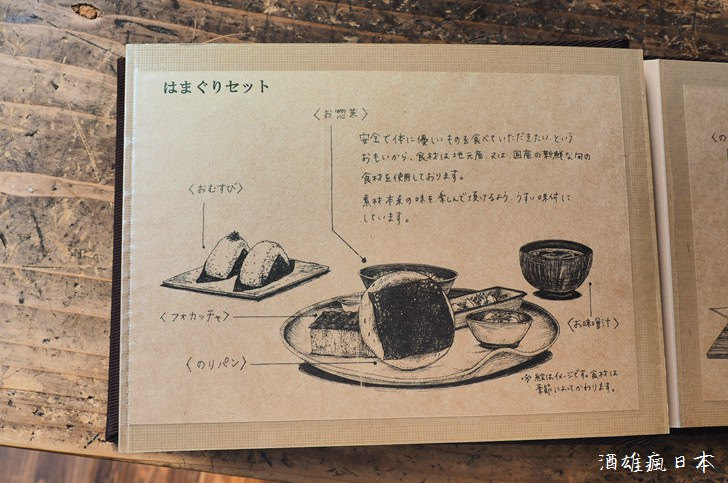 はまぐりセット
〈お惣菜〉
安全で体に優しいものを食べていただきたいという
おもいから、食材は地元産、又は国産の新鮮な旬の
食材を使用しております。
素材本来の味を楽しんで頂けるよう、うすい味付に
しています。
〈おむすび〉
〈フォカッチャ〉
〈お味噌汁〉
〈のりパン〉
※絵はイメージです。食材は
季節によってかわります。
〈の
酒雄瘋日本